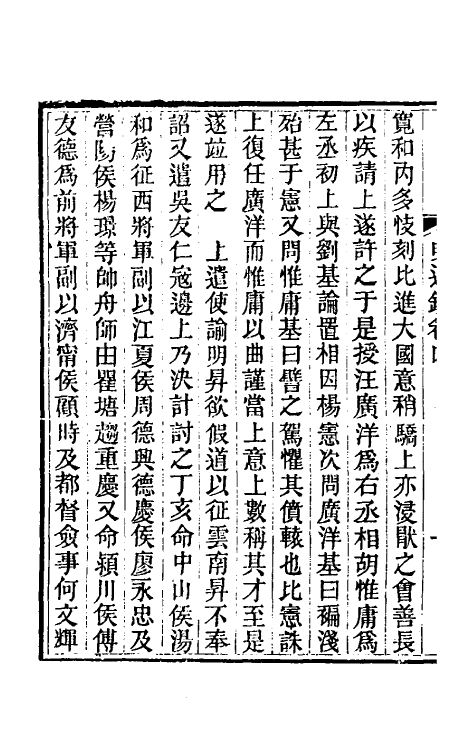 明通鑑卷四
寬和内多忮刻比進大國意稍驕上亦浸厭之會善長
以疾請上遂許之于是授汪廣洋爲右丞相胡惟庸爲
左丞初上與劉基論置相因楊憲次問廣洋基曰褊淺
殆甚于憲又問惟庸基曰譬之駕懼其僨轅也比憲誅
上復任廣洋而惟庸以曲謹當上意上數稱其才至是
遂竝用之　上遣使諭明昇欲假道以征雲南昇不奉
詔又遣吳友仁寇邊上乃決計討之丁亥命中山侯湯
和爲征西將軍副以江夏侯周德興德慶侯廖永忠及
營陽侯楊璟等帥舟師由瞿塘趨重慶又命潁川侯傅
友德爲前將軍副以濟甯侯顧時及都督僉事何文輝